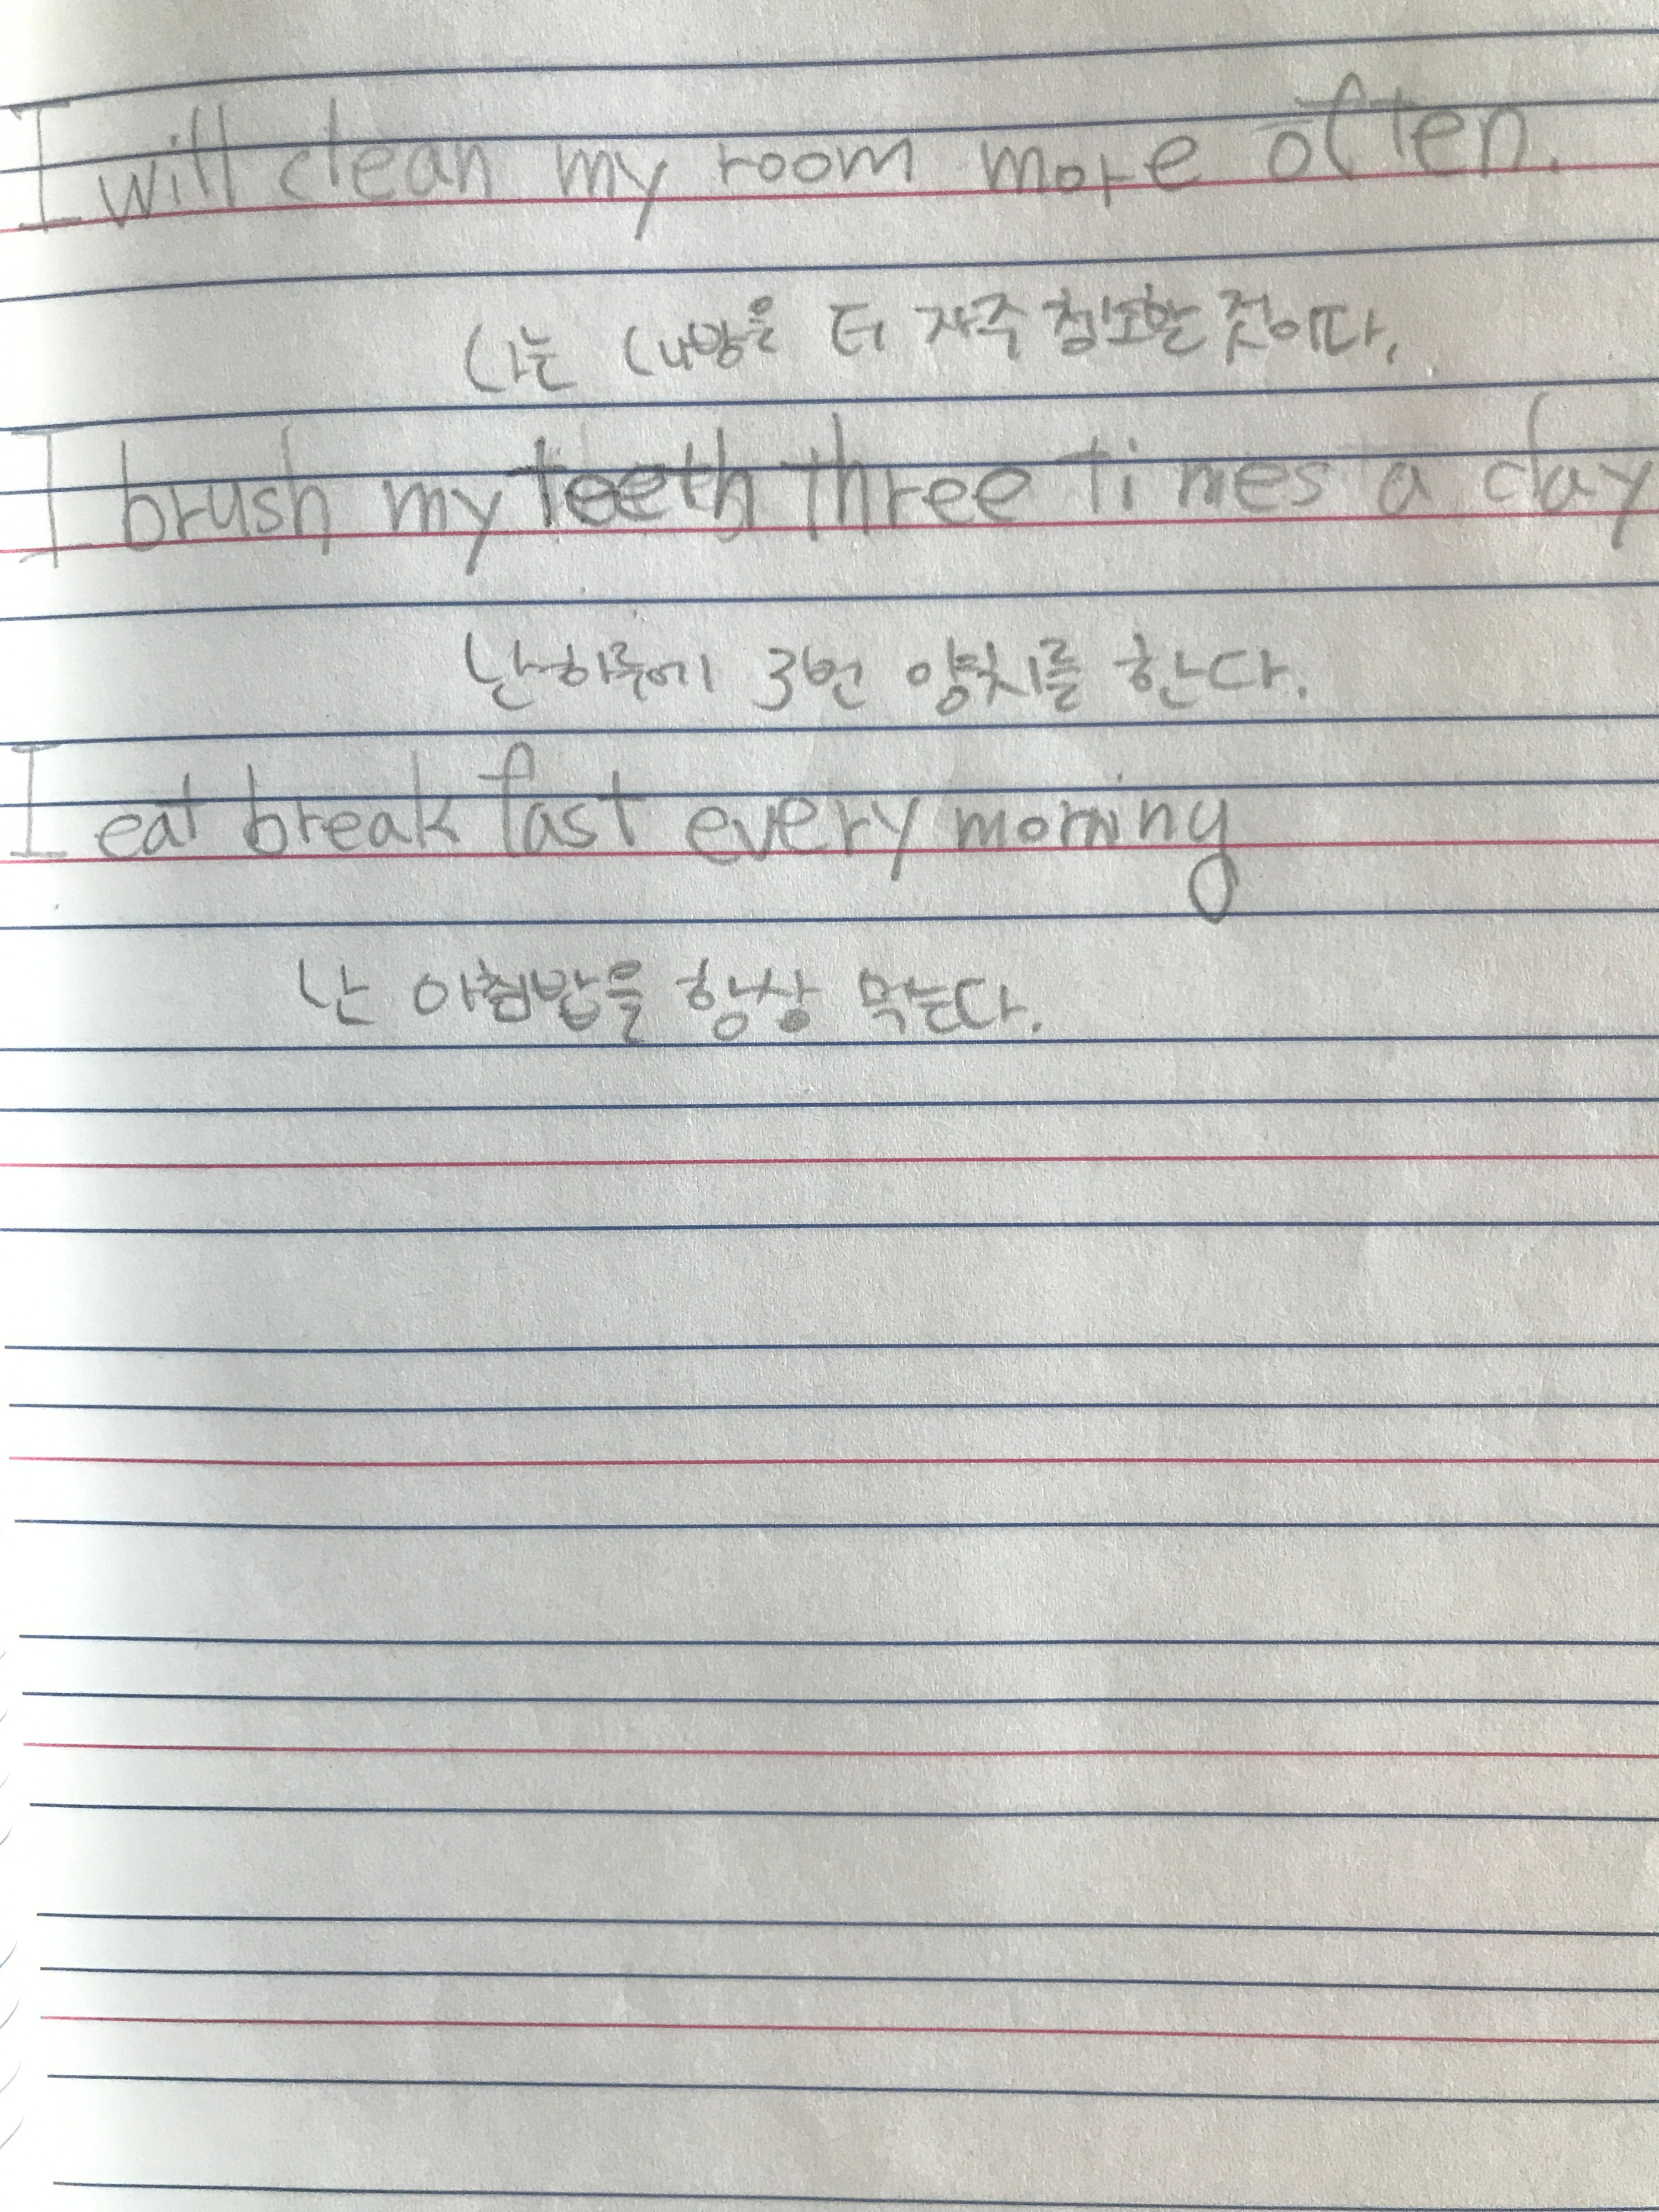 I will clean my room more often.
나는 내방을 더 자주 청소할 것이다.
I brush my teeth three times a day
난 하루에 3번 양치를 한다.
I eat breakfast every morning
난 아침밥을 항상 먹는다.